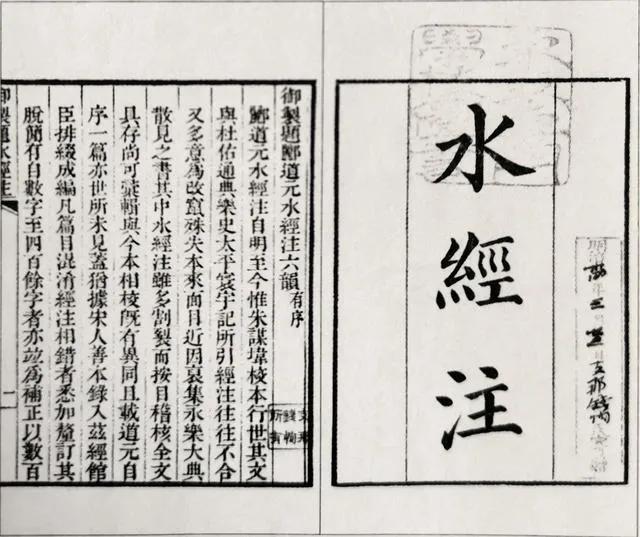 水經注
御製題酈道元水經注六韻有序
酈道元水經注自明至今惟朱謀㙔校本行世其文
與杜佑通典樂史太平寰宇記所引經注往往不合
又多意為改竄殊失本來面目近因裒集永樂大典
散見之書其中水經注雖多割裂而按目稽核全文
具存尚可彙輯與今本相校旣有異同且載道元自
序一篇亦世所未見蓋猶據宋人善本錄入茲經館
臣排綴成編凡篇目混淆經注相錯者悉加釐訂其
脫簡有自數字至四百餘字者亦竝為補正以數百
御製題水經注
二